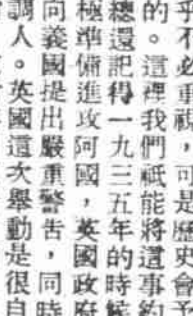 乎不必重視，可是歷史會予
的。這裡我們祇能將這事約
總還記得一九三五年的時候
極準備進攻阿國，英國政府
向義國提出嚴重警告，同時
調人。英國這次舉動是很自